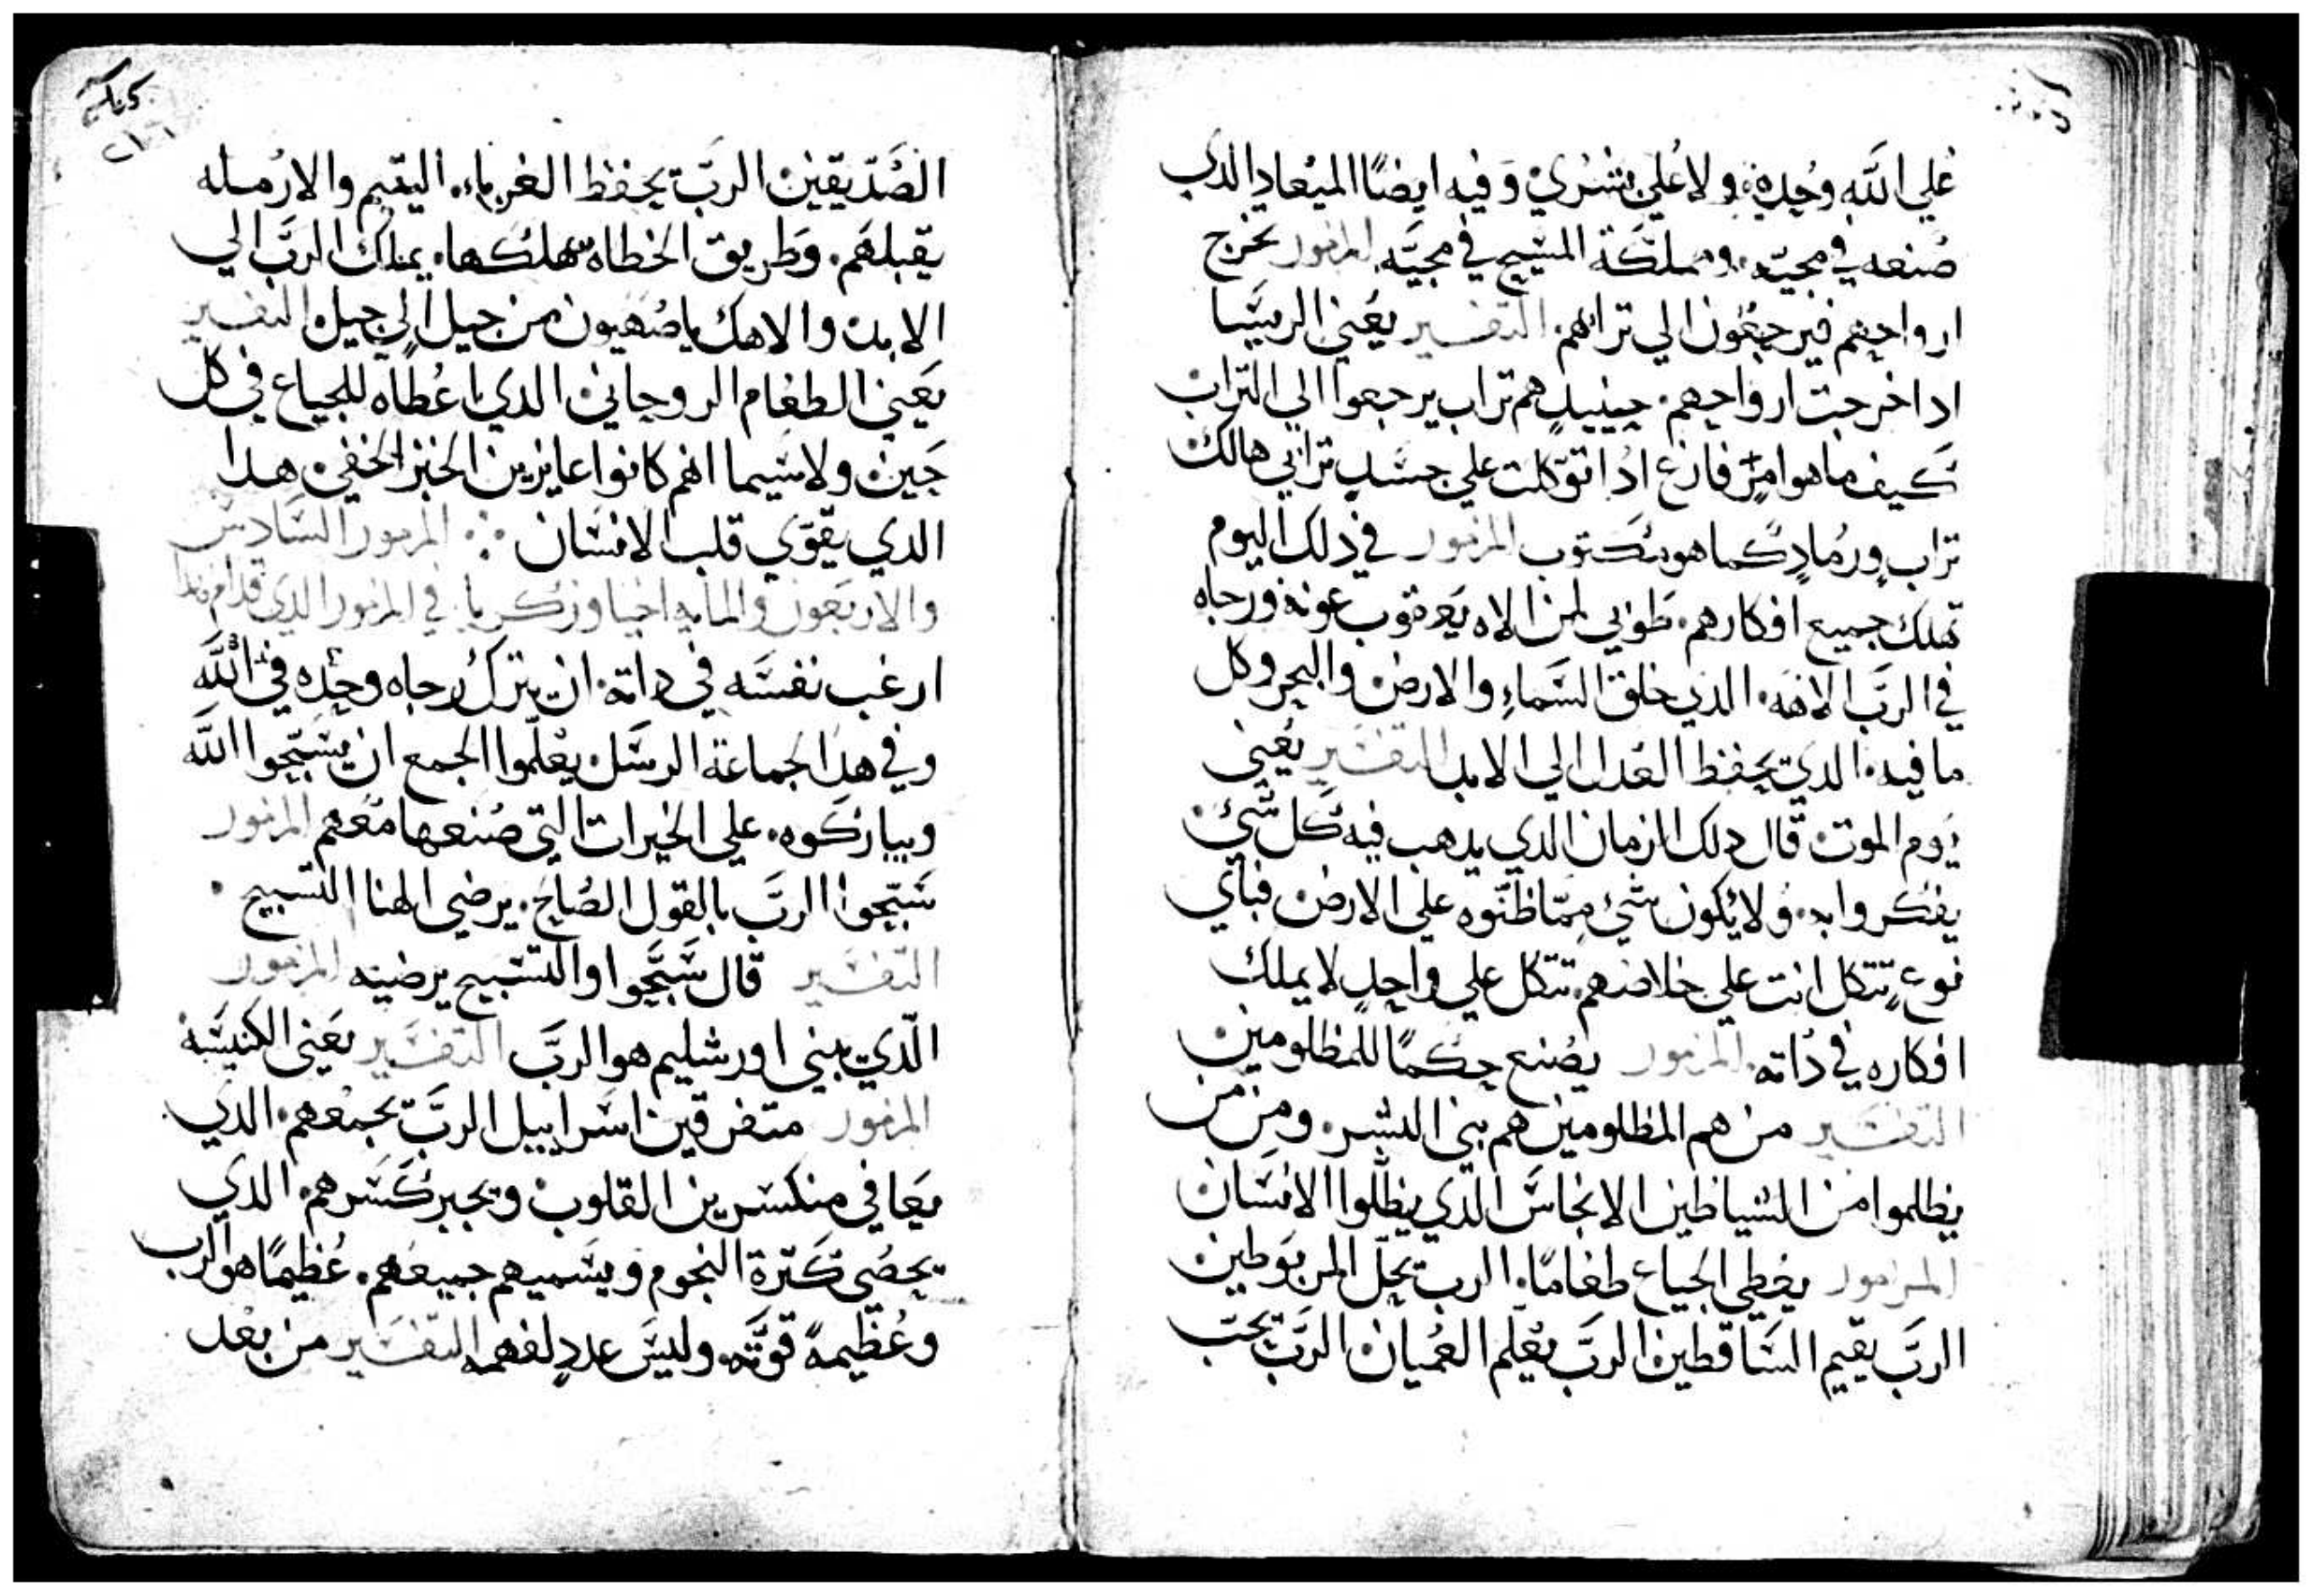 علي الله وحده. ولا علي بشري وفيه ايضًا الميعاد الدي
صنعه في مجيه. ومملكة المسيح في مجيه المزمور تخرج
ارواحهم فيرجعون الي ترابهم. التفسير يعني الريسا
ادا خرجت ارواحهم. حينيدٍ هم تراب يرجعوا الي التراب
كيف ما هوا امرٌ فارغ ادا توكلت علي جسدٍ ترابي هالك
تراب ورمادٍ كما هو مكتوب المزمور في دلك اليوم
تهلك جميع افكارهم. طوبي لمن الاه يعقوب عونه ورجاه
في الرب الاهه. الدي خلق السماءِ والارض والبحر وكل
ما فيه. الدي يحفظ العدل الي الابد التفسير يعني
يوم الموت قال دلك الزمان الدي يدهب فيه كل شيء
يفكروا به. ولا يكون شيء مما ظنوه علي الارض فباي
نوعٍ تتكل انت علي خلاصهم. تتكل علي واحدٍ لا يملك
افكاره في داته. المزمور يصنع حكمًا للمظلومين
التفسير من هم المظلومين هم بني البشر. ومن من
يظلموا من الشياطين الانجاس الدي يظلوا الانسان
المزمور يعطي الجياع طعامًا. الرب يحل المربوطين
الرب يقيم الساقطين الرب يعلم العميان الرب يحب
الصديقين الرب يحفظ الغرباء. اليتيم والارمله
يقبلهم. وطريق الخطاه يهلكها. يملك الرب الي
الابد والاهك يا صهيون من جيل الي جيل التفسير
يعني الطعام الروحاني الدي اعطاه للجياع في كل
حين ولا سيما انهم كانوا عايزين الخبز الخفي هدا
الدي يقوي قلب الانسان ∴ المزمور السادس
والاربعون والمايه احيا وزكريا. في المزمور الدي قدام هدا
ارغب نفسه في داته. ان يترك رجاه وحده في الله
وفي هدا الجماعة الرسل يعلموا الجمع ان يسبحوا الله
ويباركوه. علي الخيرات التي صنعها معهم المزمور
سبحوا الرب بالقول الصالح. يرضي الهنا التسبيح.
التفسير قال سبحوا والتسبيح يرضيه المزمور
الدي يبني اورشليم هو الرب التفسير يعني الكنيسه
المزمور متفرقين اسراييل الرب يجمعهم. الدي
يعافي منكسرين القلوب ويجبر كسرهم. الدي
يحصي كترة النجوم ويسميهم جميعهم. عظيمًا هو الرب
وعظيمةً قوته. وليس عددٍ لفهمه التفسير من بعد